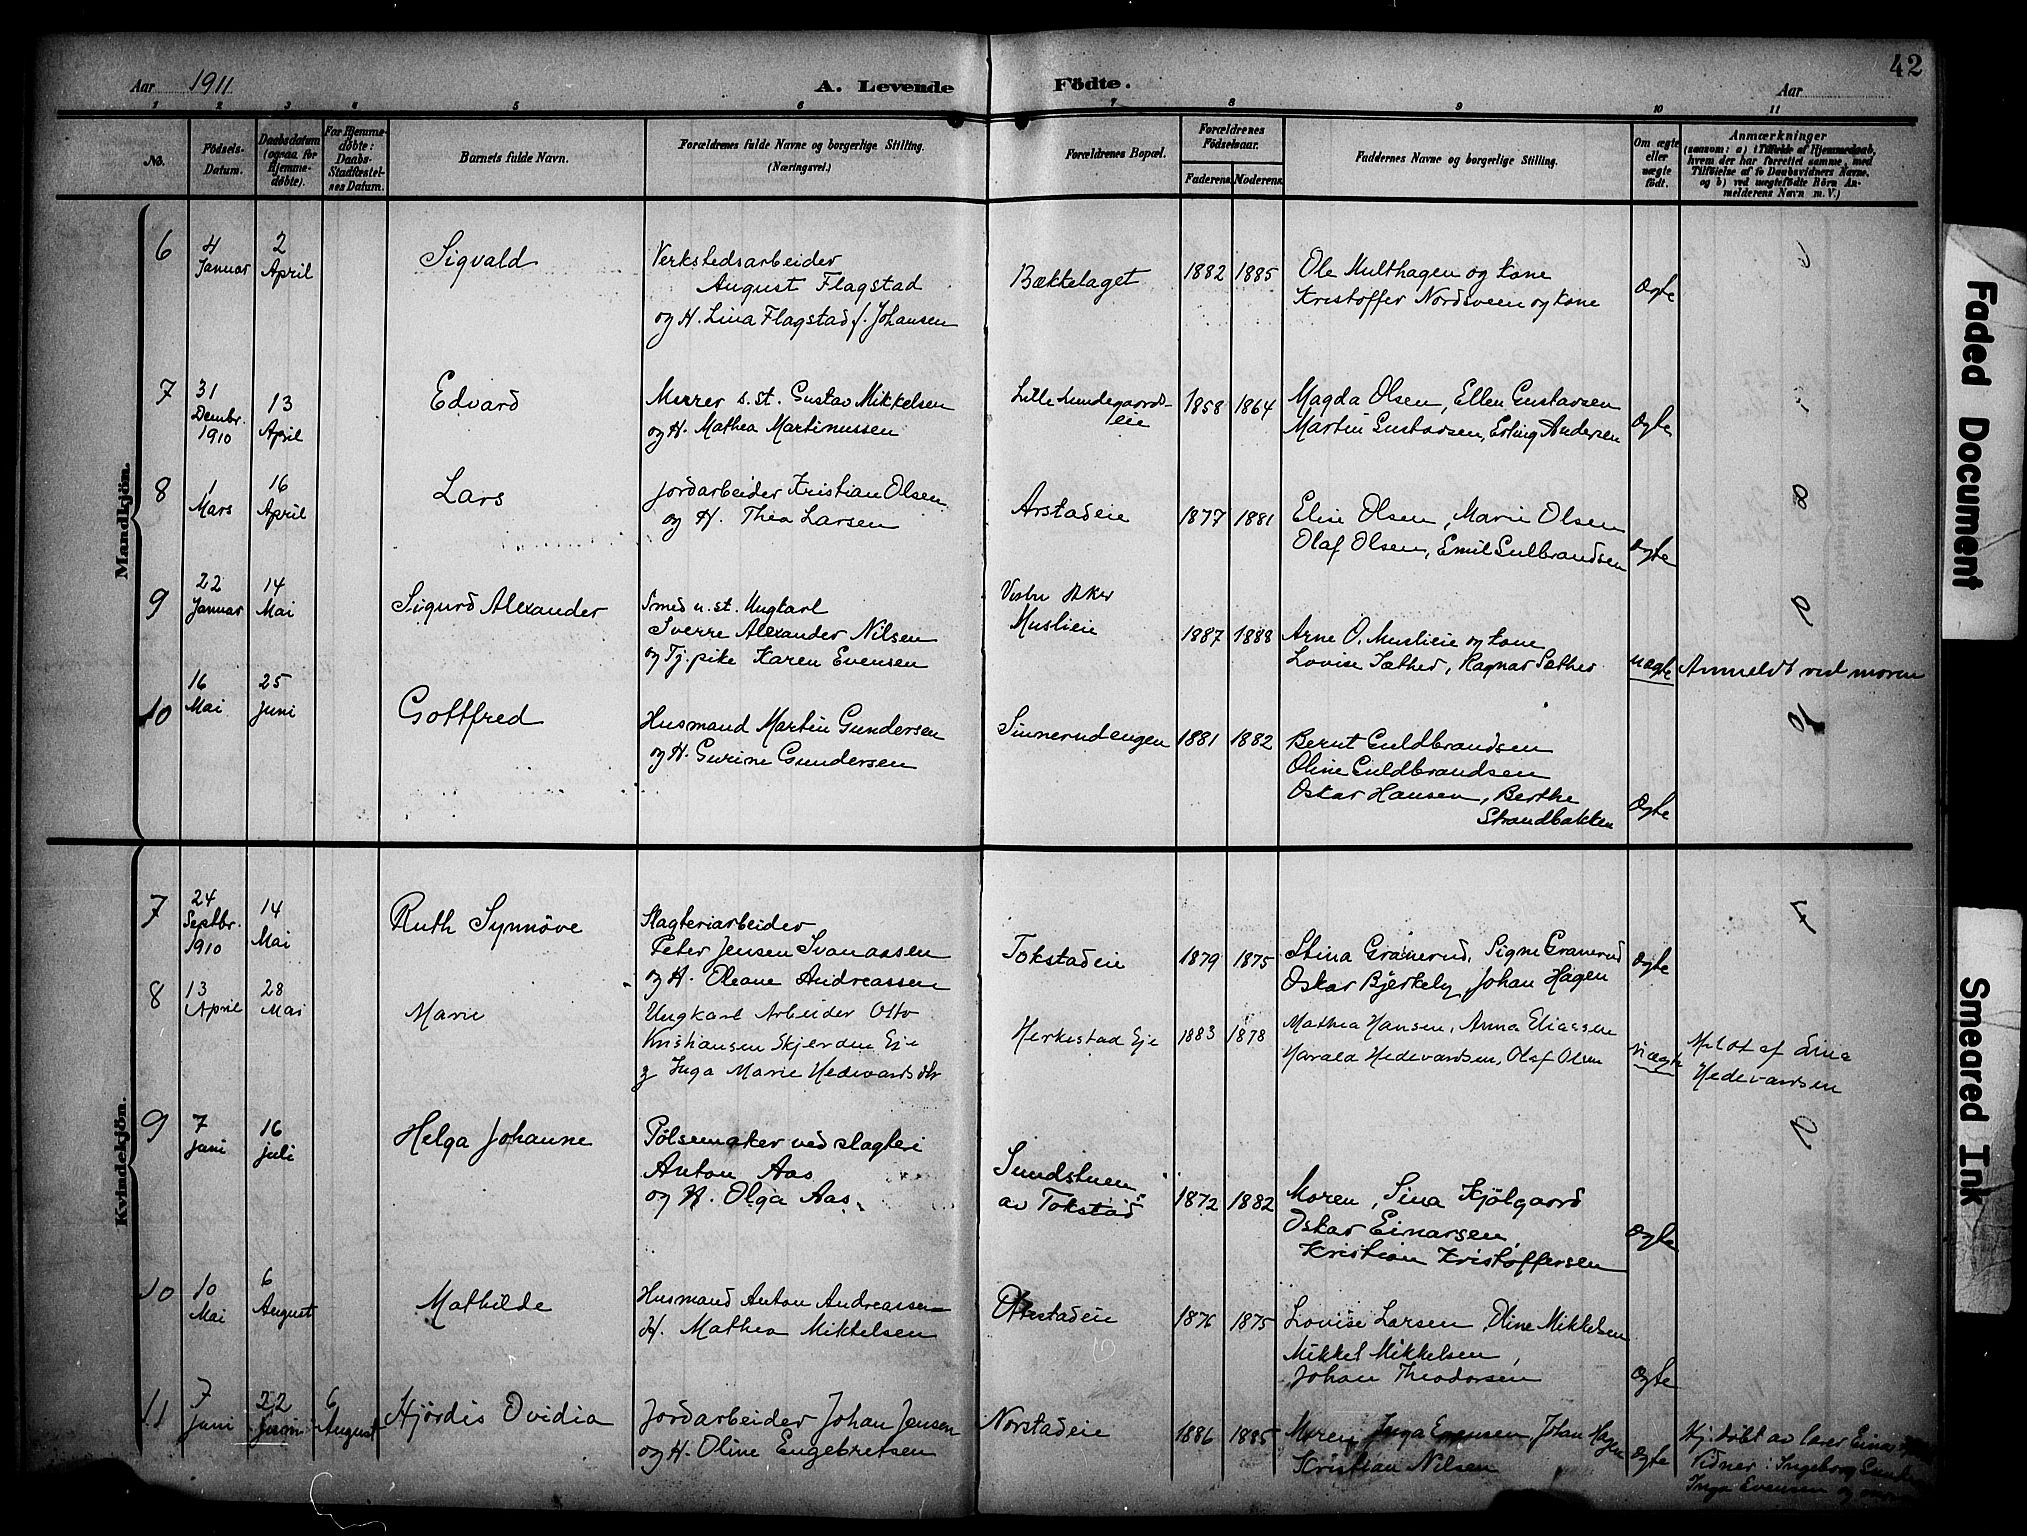 42
Aar 1911
A. Levende Födte.
Aar
1 2 3 4 5 6 7 8 9 10 11
No.
Födsels-Datum.
Daabsdatum (ogsaa for Hjemme-døbte).
For Hjemme-døbte: Daabs-Stadfæstel-ses Datum.
Barnets fulde Navn.
Forældrenes fulde Navne og borgerlige Stilling.
(Næringsvei.)
Forældrenes Bopæl.
Forældrenes Födselsaar.
Faderens. Moderens.
Faddernes Navne og borgerlige Stilling.
Om ægte eller uægte født.
Anmærkninger
(saasom: a) i Tilfælde af Hjemmedaab,
hvem der har forrettet samme, med
Tilföielse af to Daabsvidners Navne.
og b) ved uægtefødte Börn An-
melderens Navn m. V.)
Mandkjön.
6
4 Januar
2 April
Sigvald
Verkstedsarbeider
August Flagstad
og H. Lina Flagstad f. Johansen
Bækkelaget
1882 1885
Ole Multhagen og kone
Kristoffer Nordsveen og kone
Ægte
7
31 Dembr. 1910
13 April
Edvard
Murer s. st. Gustav Mikkelsen
og H. Mathea Martinussen
Lille Lundegaards-
eie
1858 1864
Magda Olsen, Ellen Gustavsen
Martin Gustavsen, Erling Andersen
Ægte
8
1 Mars
16 April
Lars
Jordarbeider Kristian Olsen
og H. Thea Larsen
Arstadeie
1877 1881
Elise Olsen, Marie Olsen
Olaf Olsen, Emil Gulbrandsen
Ægte
8
9
22 Januar
14 Mai
Sigurd Alexander
Smed u. st. Ungkarl
Sverre Alexander Nilsen
og Tj. pike Karen Evensen
Vestre Aker
Muslieie
1887 1888
Arne O. Muslieie og kone
Lovise Sæther, Ragnar Sæther
uægte
Anmeldt ved moren
10
16 Mai
25 Juni
Gottfred
Husmand Martin Gundersen
og H. Gurine Gundersen
Sinnerudengen
1881 1882
Bernt Guldbrandsen
Oline Guldbrandsen
Oskar Hansen, Berthe
Strandbakken
Ægte
Kvindekjön.
7
24 Septbr. 1910
14 Mai
Ruth Synnöve
Slagteriarbeider
Peter Jensen Svenassen
og H. Oleane Andreassen
Tokstadeie
1879 1875
Stina Granerud, Signe Granerud
Oskar Bjerkeby, Johan Hagen
Ægte
8
13 April
28 Mai
Marie
Ungkarl Arbeider Otto
Kristiansen Skjerden Eje
og Inga Marie Hedevardsdtr
Herkestad Eje
1883 1878
Mathea Hansen, Anna Eliassen
Harald Hedevardsen, Olaf Olsen
Uægte
Meldt af Lina
Hedevardsen
9
7 Juni
16 Juli
Helga Johanne
Pølsemaker ved slagteri
Anton Aas
og H. Olga Aas
Sundstuen
av Tokstad
1872 1882
Moren, Lina Kjölgaard
Oskar Einarsen,
Kristian Kristoffersen
Ægte
10
10 Mai
6 August
Mathilde
Husmand Anton Andreassen
H. Mathea Mikkelsen
1876 1875
Lovise Larsen, Oline Mikkelsen
Mikkel Mikkelsen,
Johan Theodorsen
Ægte
11
7 Juni
22 Juni
6 August
Hjördis Ovidia
Jordarbeider Johan Jensen
og H. Oline Engebretsen
Norstadeie
1886 1885
Moren, Inga Evensen, Johan Hagen
Kristian Nilsen
Ægte
Hj. döbt av lærer Einar
Vidner: Ingeborg
Inga Evensen og
Faded Document
Smeared Ink